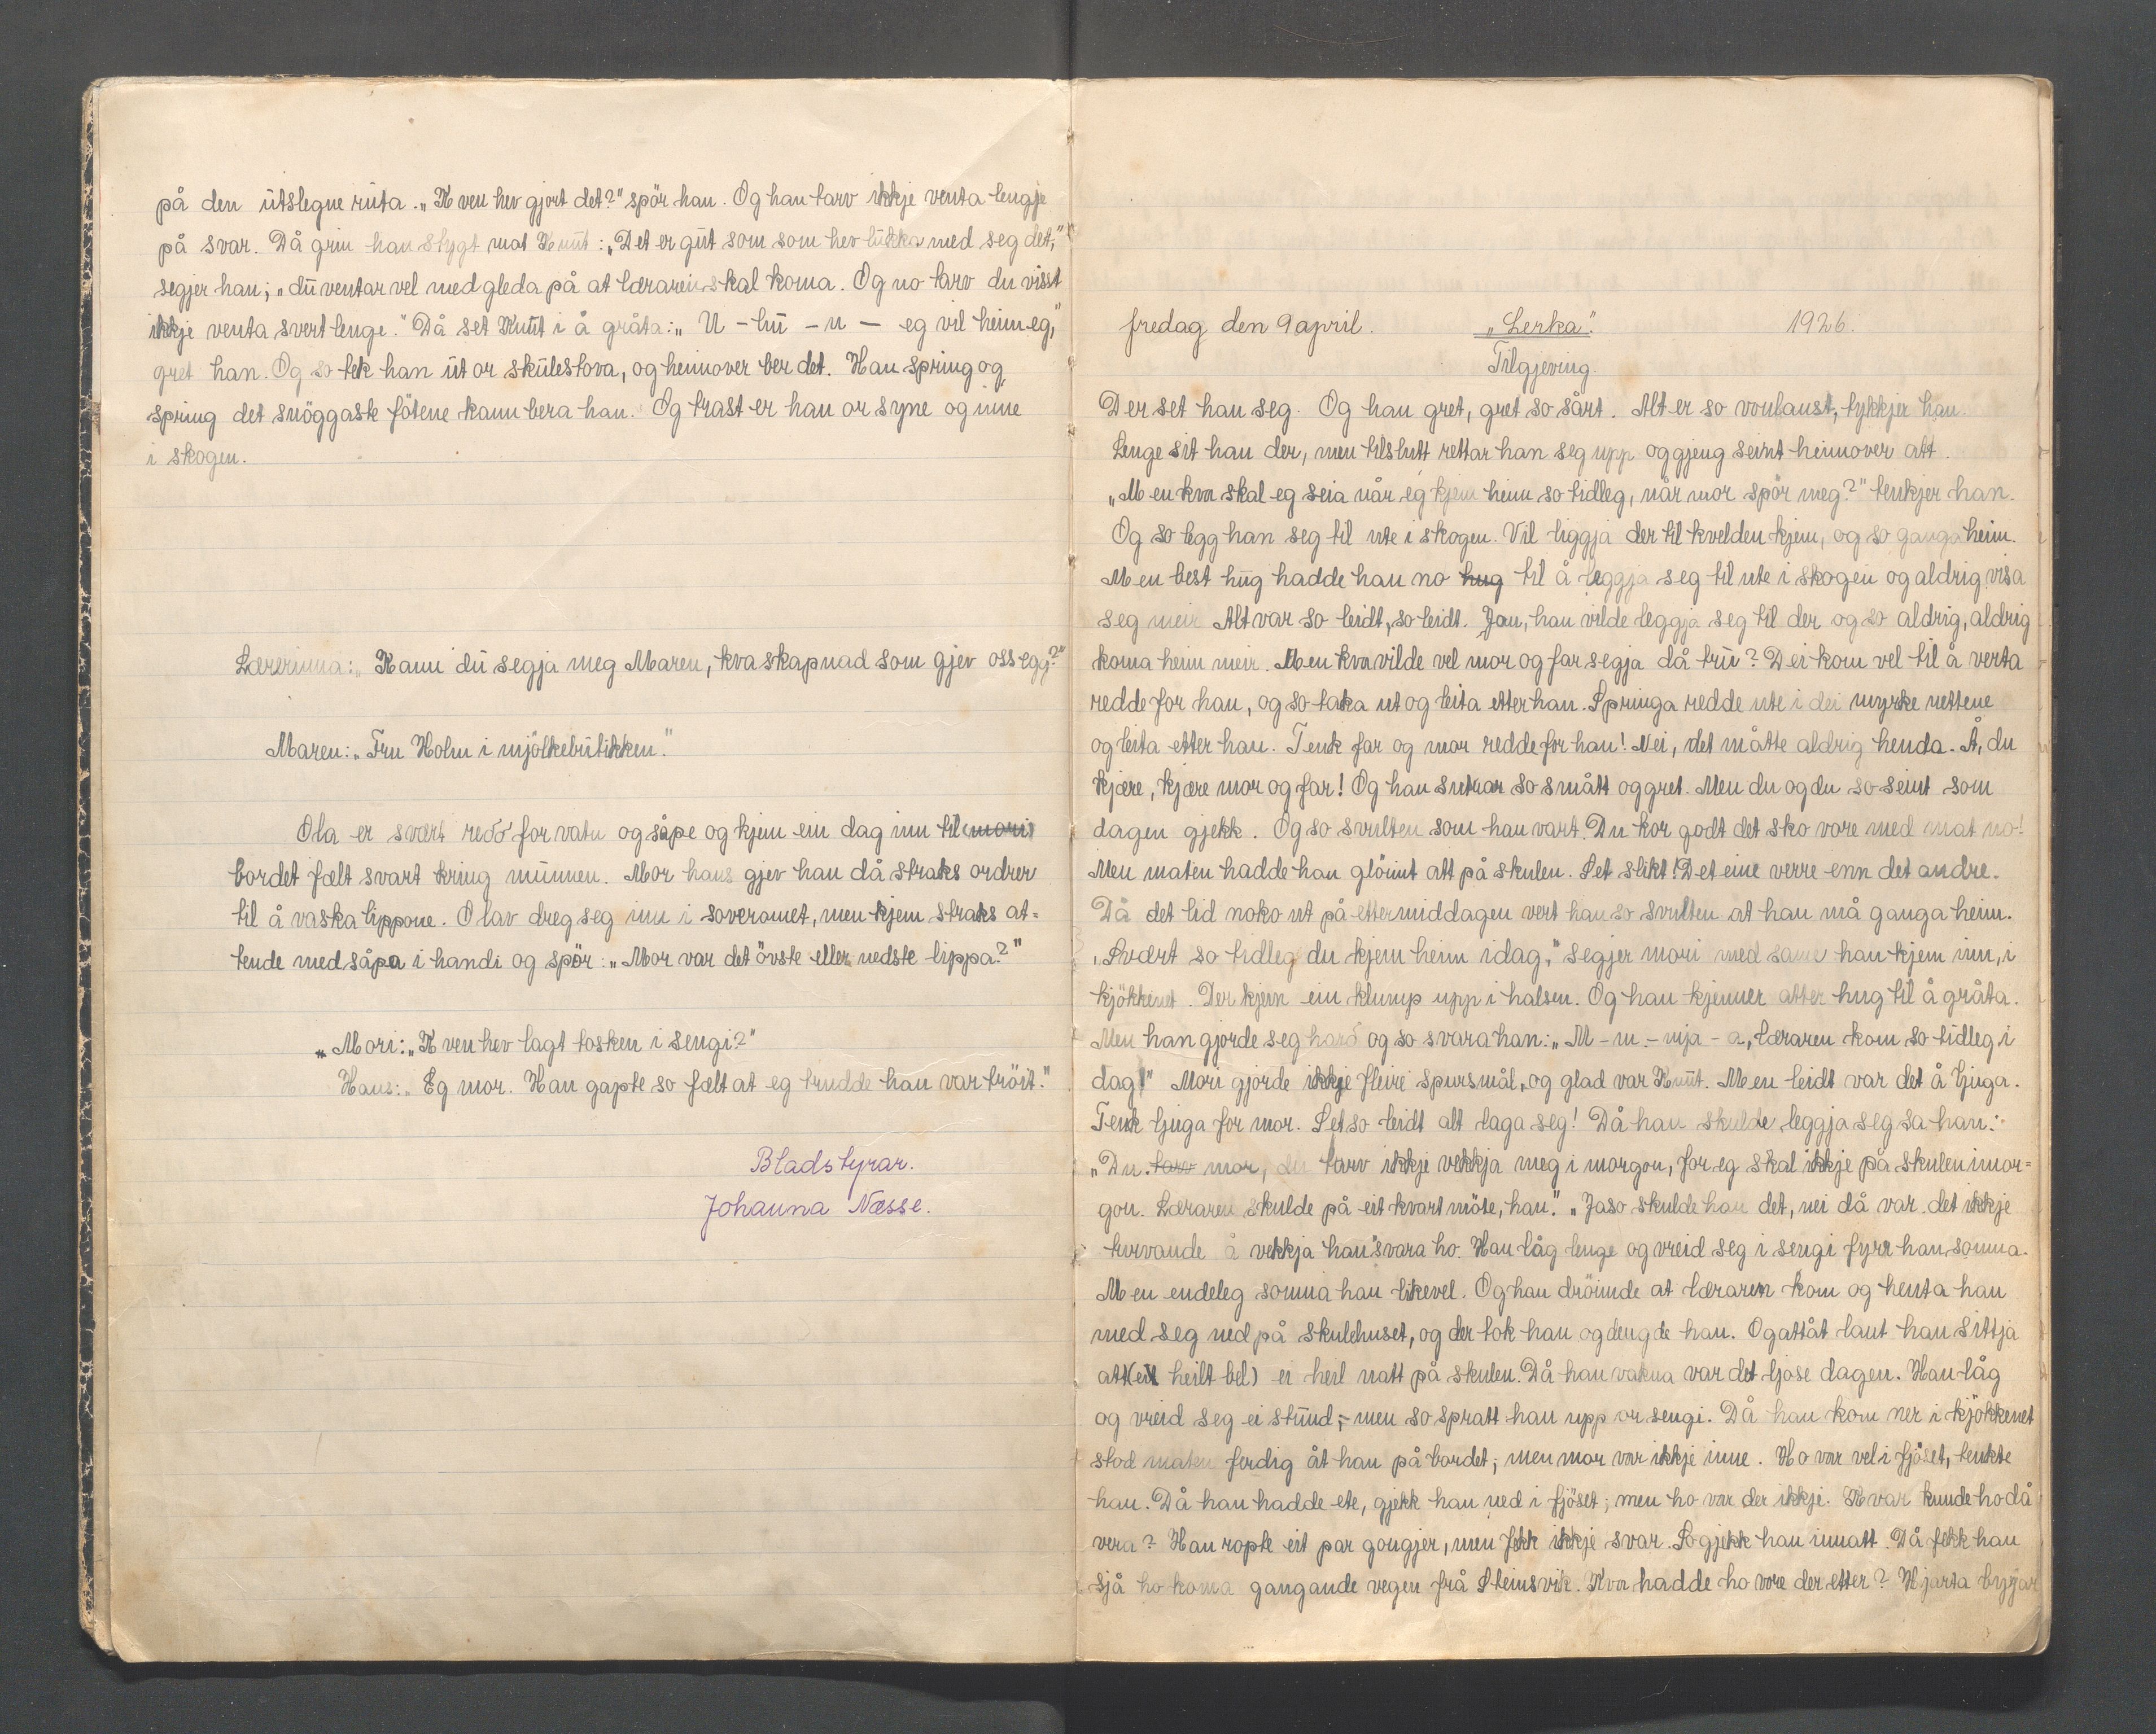 på den utslegne ruta. „Kven hev gjort det?" spör han. Og han tarv ikkje venta lengje
på svar. Då grin han stygt mot Knut: „Det er gut som som hev lukka med seg det,"
segjer han; „du ventar vel med gleda på at læraren skal koma. Og no tarv du visst
ikkje venta svert lenge." Då set Knut i å gråta: „U - hu - u — eg vil heim eg,"
gret han. Og so tek han ut or skulestova, og heimover ber det. Han spring og
spring det snöggaste fötene kann bera han. Og brast er han or syne og inne
i skogen.
Lærerinna: „Kann du segja meg Maren, kva skapnad som gjev oss egg?"
Maren: „Fru Holm i mjölkebutikken."
Ola er svært redd for vatn og såpe og kjem ein dag inn til mori
bordet fælt svart kring munnen. Mor hans gjev han då straks ordrer
til å vaska lippone. Olav dreg seg inn i soveromet, men kjem straks at-
tende med såpa i handi og spör: „Mor var det övste eller nedste lippa?"
„Mori: „Kven hev lagt tosken i sengi?"
Hans: „Eg mor. Han gapte so fælt at eg trudde han var tröit."
Bladstyrar.
Johanna Næsse.
fredag den 9 april. „Lerka". 1926.
Tilgjeving.
Der set han seg. Og han gret, gret so sårt. Alt er so vonlaust, tykkjer han.
Lenge sit han der, men tilslutt rettar han seg upp og gjeng seint heimover att.
„Men kva skal eg seia når eg kjem heim so tidleg, når mor spör meg?" tenkjer han.
Og so legg han seg til ute i skogen. Vil liggja der til kvelden kjem, og so ganga heim.
Men best hug hadde han no hug til å leggja seg til ute i skogen og aldrig visa
seg meir. Alt var so leidt, so leidt. Jau, han vilde leggja seg til der og so aldrig, aldrig
koma heim meir. Men kva vilde vel mor og far segja då tru? Dei kom vel til å verta
redde for han, og so taka ut og leita etter han. Springa redde ute i dei myrke nettene
og leita etter han. Tenk far og mor redde for han! Nei, det måtte aldrig henda. Å, du
kjære, kjære mor og far! Og han sutrar so smått og gret. Men du og du so seint som
dagen gjekk. Og so svulten som han vart. Du kor godt det sko vore med mat no!
Men maten hadde han glöimt att på skulen. Set slikt! Det eine verre enn det andre.
Då det lid noko ut på ettermiddagen vert han so svulten at han må ganga heim.
„Svært so tidleg du kjem heim idag," segjer mori med same han kjem inn, i
kjökkenet. Der kjem ein klump upp i halsen. Og han kjenner atter hug til å gråta.
Men han gjorde seg hard og so svara han: „M - m - mja - a, læraren kom so tidleg i
dag!" Mori gjorde ikkje fleire spursmål, og glad var Knut. Men leidt var det å ljuga.
Tenk ljuga for mor. Set so leidt alt laga seg! Då han skulde leggja seg sa han:
„Du tarv mor, du tarv ikkje vekkja meg i morgon, for eg skal ikkje på skulen imor-
gon. Læraren skulde på eit kvart möte, han." „Jaso skulde han det, nei då var det ikkje
turvande å vekkja han" svara ho. Han låg lenge og vreid seg i sengi fyrr han somna.
Men endeleg somna han likevel. Og han dröimde at læraren kom og henta han
med seg ned på skulehuset, og der tok han og dengde han. Og attåt laut han sittja
att (eit heilt bel) ei heil natt på skulen. Då han vakna var det ljose dagen. Han låg
og vreid seg ei stund; men so spratt han upp or sengi. Då han kom ner i kjökkenet
stod maten ferdig åt han på bordet; men mor var ikkje inne. Ho var vel i fjöset, tenkte
han. Då han hadde ete, gjekk han ned i fjöset; men ho var der ikkje. Kvar kunde ho då
vera? Han ropte eit par gongjer, men fekk ikkje svar. So gjekk han innatt. Då fekk han
sjå ho koma gangande vegen frå Steinsvik. Kva hadde ho vore der etter? Hjarta byrjar